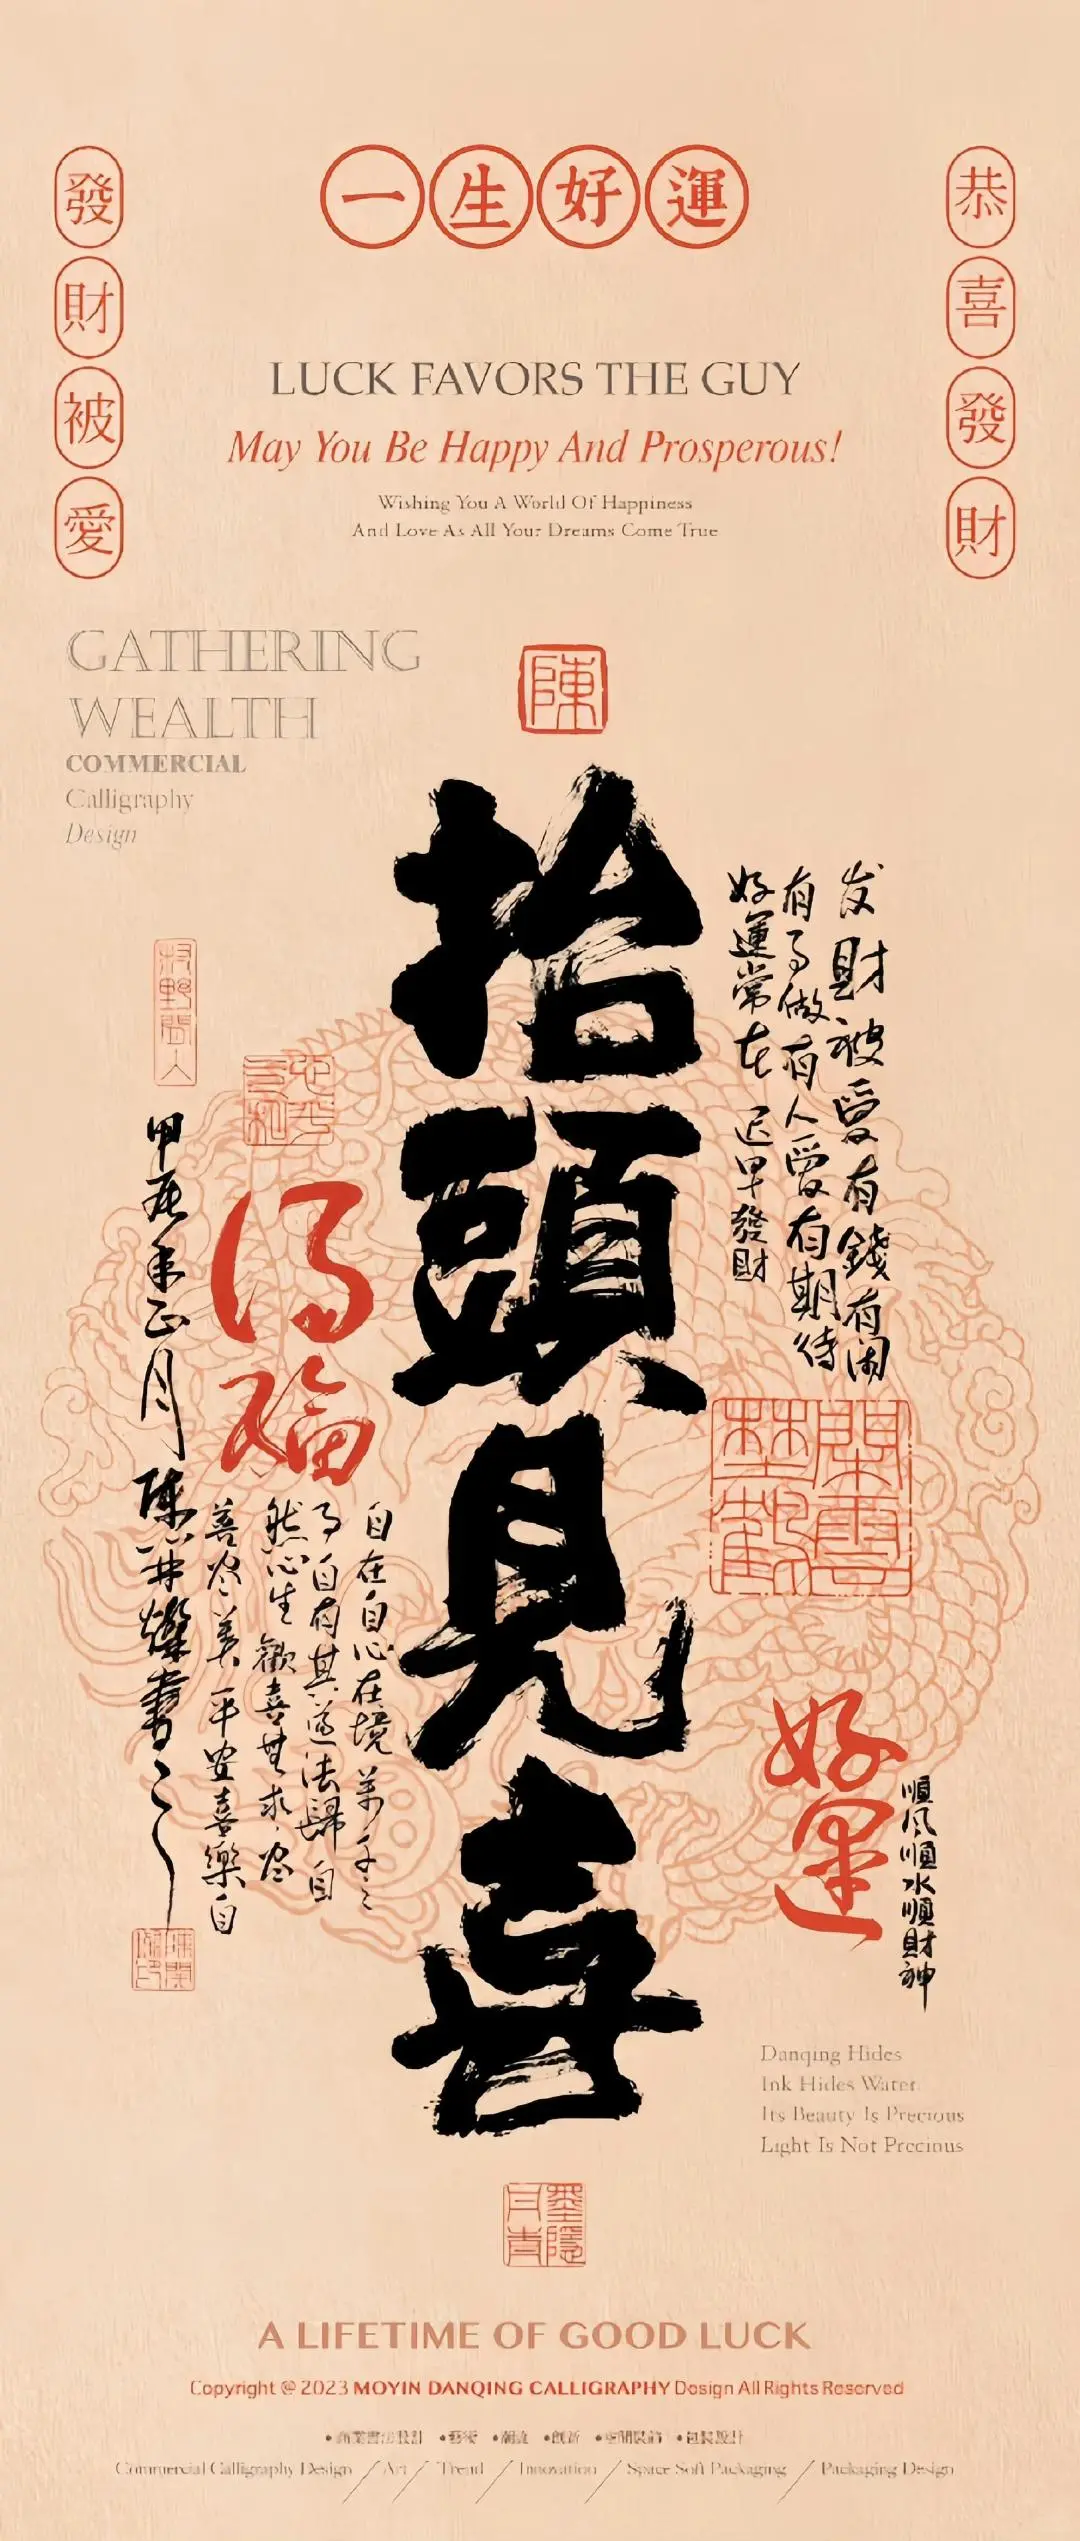 一生好運
恭喜發財
發財被愛
LUCK FAVORS THE GUY
May You Be Happy And Prosperous!
Wishing You A World Of Happiness
And Love As All Your Dreams Come True
GATHERING
WEALTH
COMMERCIAL
Calligraphy
Design
陳
抬頭見喜
发財被愛有錢有闲
有事做有人愛有期待
好運常在 迟早發財
好運
順風順水順財神
得福
自在自心在境 萬千之
事自有其道法歸自
然心生歡喜無求盡
善盡美平安喜樂自
甲辰年正月
Danqing Hides
Ink Hides Water
Its Beauty Is Precious
Light Is Not Precious
墨隱
丹青
A LIFETIME OF GOOD LUCK
Copyright @ 2023 MOYIN DANQING CALLIGRAPHY Design All Rights Reserved
•商業書法設計 •藝術 •潮流 •創新 •空間裝飾 •包裝設計
Commercial Calligraphy Design / Art / Trend / Innovation / Space Soft Packaging / Packaging Design